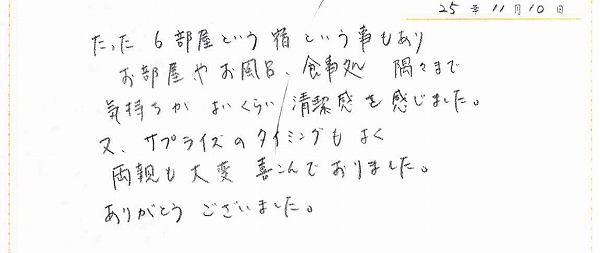 25年 11月 10日
たった 6部屋という 宿 という 事もあり
お部屋や お風呂、食事処 隅々まで
気持ちが よいくらい 清潔感を 感じました。
又、サプライズの タイミングも よく
両親も 大変 喜こんで おりました。
ありがとう ございました。